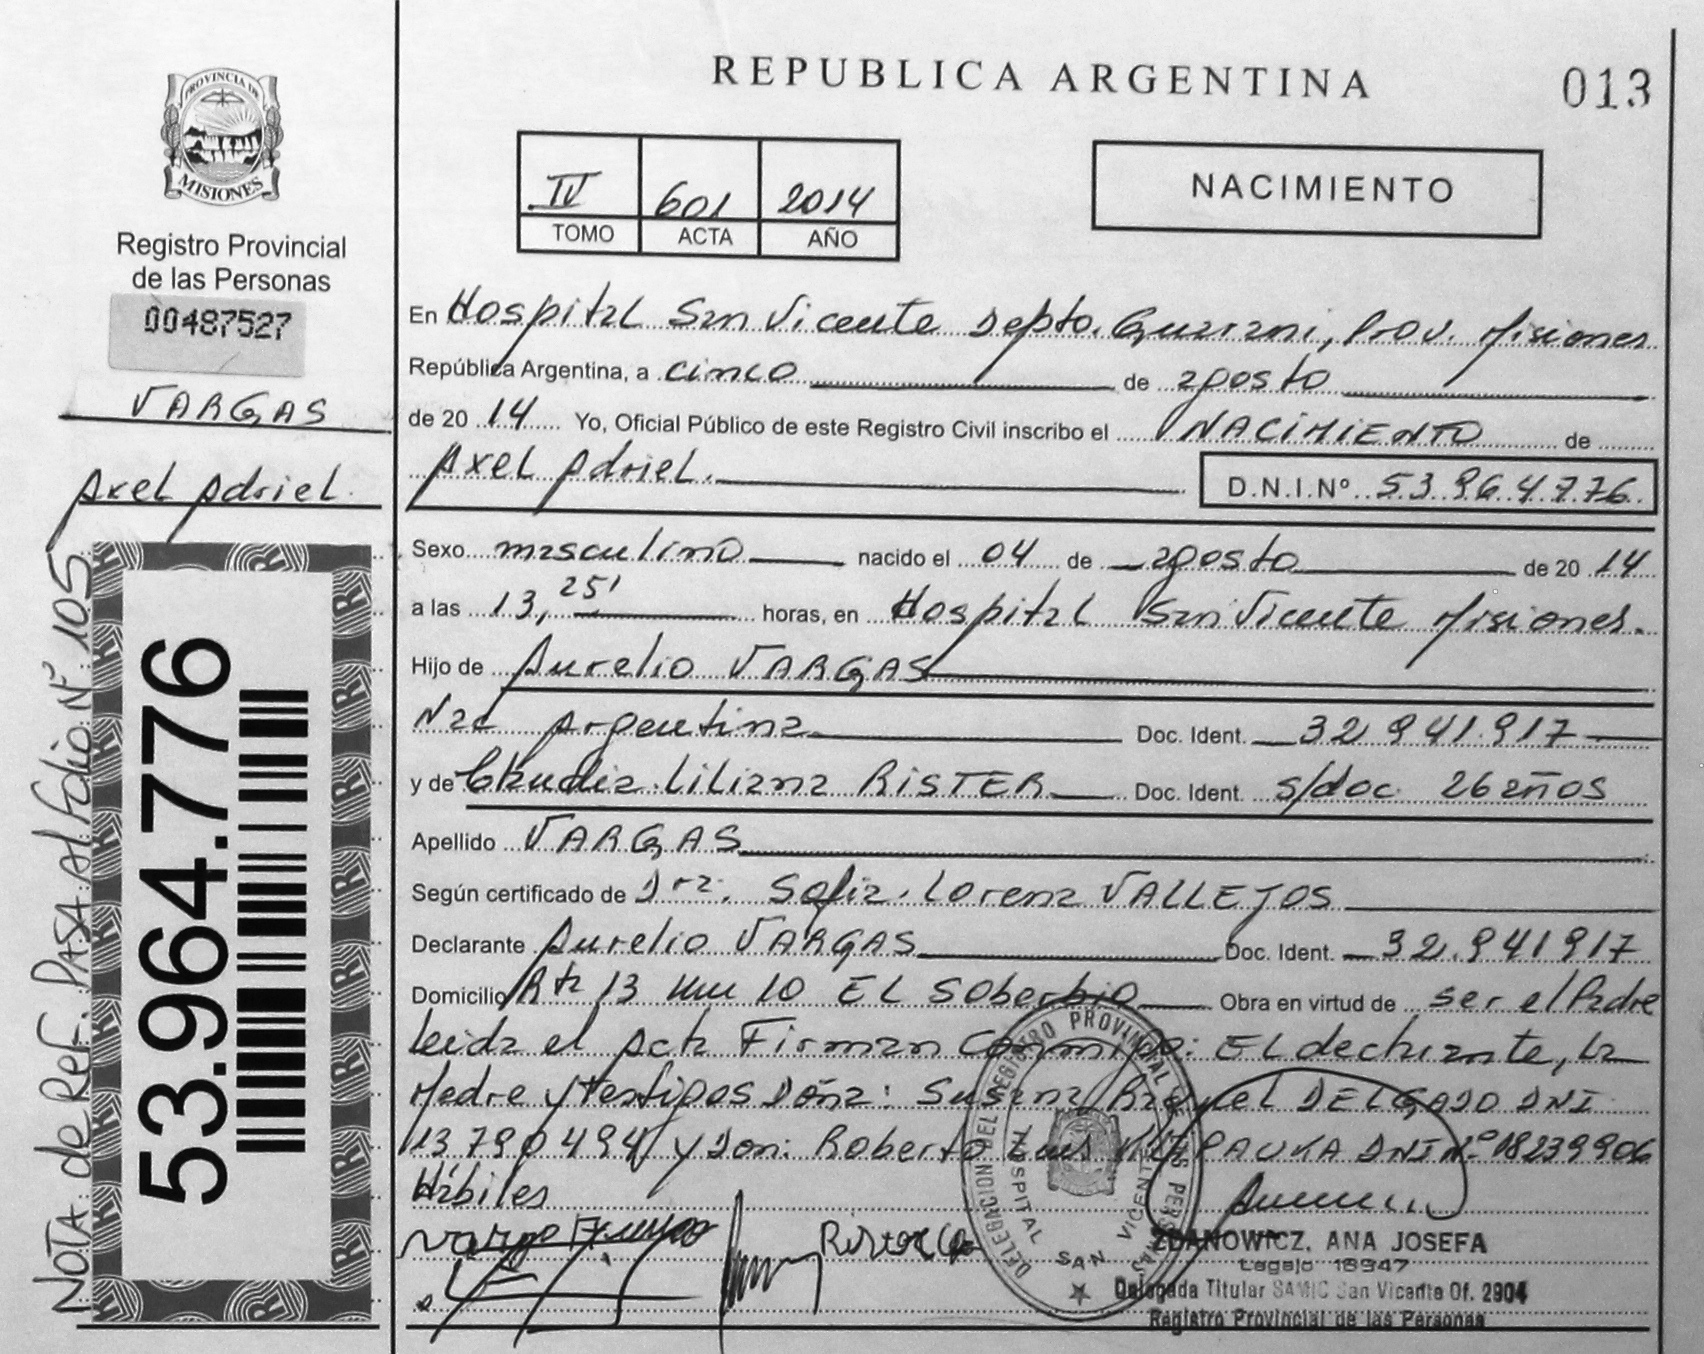 PROVINCIA DE
MISIONES
Registro Provincial
de las Personas
00487527
VARGAS
Axel Adriel.
NOTA: de Ref. PASA Al Folio Nº 105
53.964.776
REPUBLICA ARGENTINA
013
IV 601 2014
TOMO ACTA AÑO
NACIMIENTO
En Hospital San Vicente Depto. Guarani, Prov. Misiones
República Argentina, a cinco de agosto
de 20 14 Yo, Oficial Público de este Registro Civil inscribo el NACIMIENTO de
Axel Adriel. D.N.I.Nº 53.964.776
Sexo masculino nacido el 04 de agosto de 20 14
a las 13,25' horas, en Hospital San Vicente Misiones.
Hijo de Aurelio VARGAS
Nac Argentina Doc. Ident. 32 941.917
y de Claudia Liliana RISTER Doc. Ident. s/doc 26 años
Apellido VARGAS
Según certificado de Dra. Sofia Lorena VALLEJOS
Declarante Aurelio VARGAS Doc. Ident. 32.941917
Domicilio Rta 13 km 10 EL Soberbio Obra en virtud de ser el Padre
Leida el Acta Firman Conmigo: El declarante, La
Madre y testigos Doña: Susana Raquel DELGADO DNI
13790494 y Don: Roberto Luis PAUKA DNI Nº 18239906
Hábiles
DELEGACION DEL REGISTRO PROVINCIAL DE LAS PERSONAS
HOSPITAL SAN VICENTE
ZDANOWICZ, ANA JOSEFA
Legajo 18947
Delegada Titular SAMIC San Vicente Of. 2904
Registro Provincial de las Personas